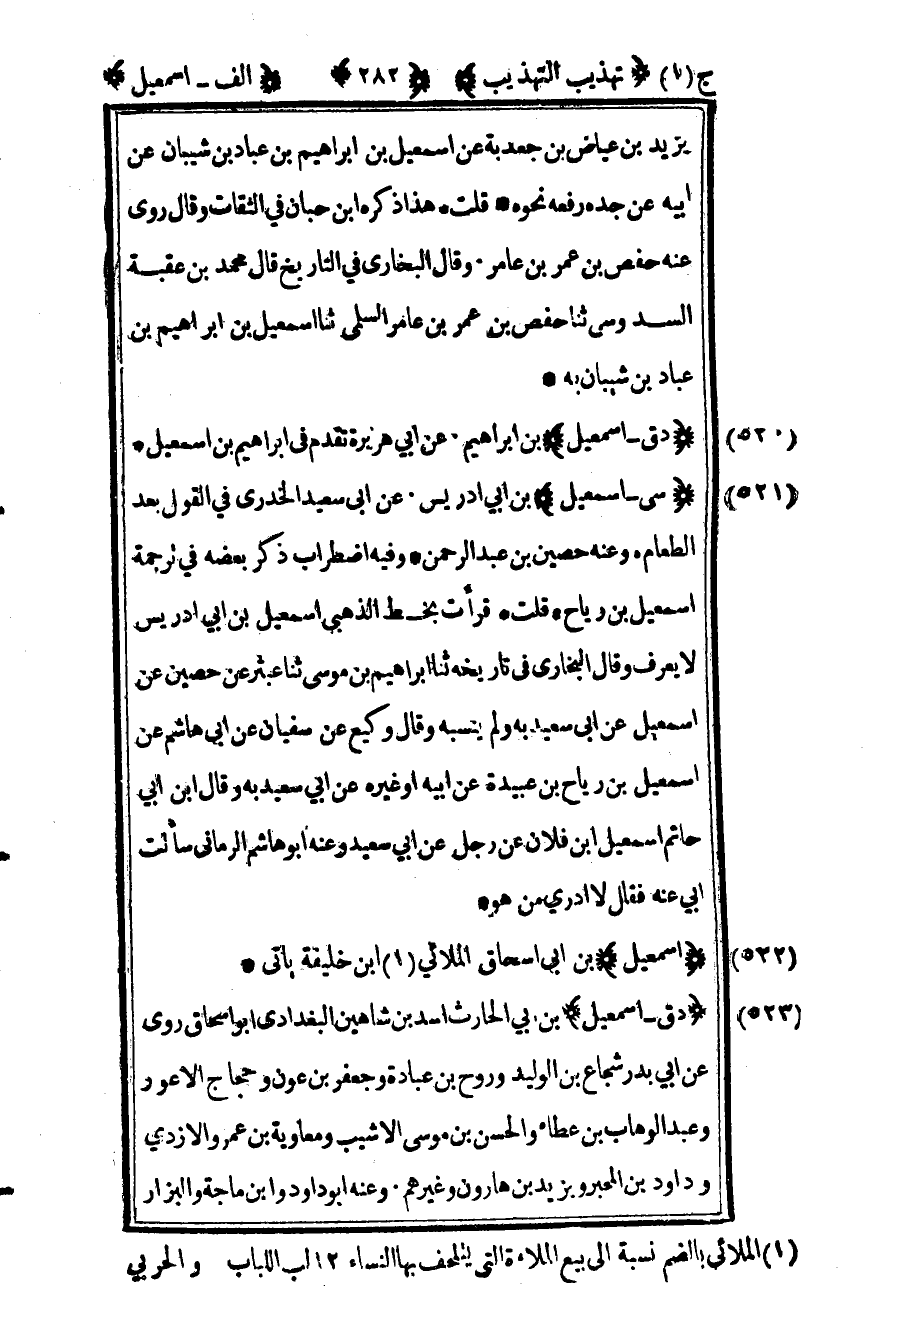 ج(١) ﴿ تهذيب التهذيب ﴾ ﴿ ٢٨٢ ﴾ ﴿ الف ـ اسمعيل ﴾
يزيد بن عياض بن جعدبة عن اسمعيل بن ابراهيم بن عباد بن شيبان عن
ابيه عن جده رفعه نحوه * قلت * هذا ذكره ابن حبان في الثقات وقال روى
عنه حفص بن عمر بن عامر · وقال البخارى في التاريخ قال محمد بن عقبة
السدوسى ثنا حفص بن عمر بن عامر السلمى ثنا اسمعيل بن ابراهيم بن
عباد بن شيبان به *
(٥٢٠) ﴿ دق ـ اسمعيل ﴾ بن ابراهيم · عن ابي هريرة تقدم فى ابراهيم بن اسمعيل *
(٥٢١) ﴿ سى ـ اسمعيل ﴾ بن ابي ادريس · عن ابى سعيد الخدرى في القول بعد
الطعام * وعنه حصين بن عبد الرحمن * وفيه اضطراب ذكر بعضه في ترجمة
اسمعيل بن رياح * قلت * قرأت بخط الذهبي اسمعيل بن ابي ادريس
لا يعرف وقال البخارى فى تاريخه ثنا ابراهيم بن موسى ثنا عبثر عن حصين عن
اسمعيل عن ابى سعيد به ولم ينسبه وقال وكيع عن سفيان عن ابي هاشم عن
اسمعيل بن رياح بن عبيدة عن ابيه او غيره عن ابي سعيد به وقال ابن ابي
حاتم اسمعيل ابن فلان عن رجل عن ابي سعيد وعنه ابو هاشم الرمانى سألت
ابي عنه فقال لا ادري من هو *
(٥٢٢) ﴿ اسمعيل ﴾ بن ابى اسحاق الملائي (١) ابن خليفة يأتى *
(٥٢٣) ﴿ دق ـ اسمعيل ﴾ بن ابي الحارث اسد بن شاهين البغدادى ابو اسحاق روى
عن ابي بدر شجاع بن الوليد وروح بن عبادة وجعفر بن عون وحجاج الاعور
وعبد الوهاب بن عطاء والحسن بن موسى الاشيب ومعاوية بن عمرو الازدي
وداود بن المحبر ويزيد بن هارون وغيرهم · وعنه ابو داود وابن ماجة والبزار
(١) الملائي بالضم نسبة الى بيع الملاءة التى يتلحف بها النساء ١٢ لب اللباب والحربي